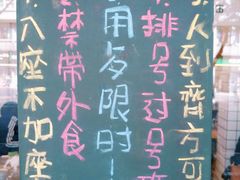 人到齊方可
排号过号
用歺限时!
禁带外食
入座不加座